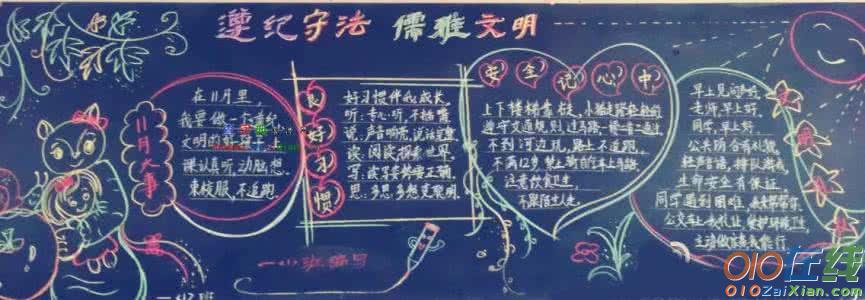 遵纪守法 儒雅文明
11月大事
在11月里,
我要做一个遵纪
文明的好孩子,上
课认真听,动脑想.
来校服,不追跑.
良好习惯
好习惯伴我成长.
听:专心听,不插嘴
说:声音响亮,说话完整
读:阅读探索世界.
写:读写姿势要正确.
思:多思多想更聪明.
安全记心中
上下楼梯靠右走,小猫走路轻轻的
遵守交通规则,过马路一停二看三通过
不到河边玩,路上不追跑.
不满12岁禁止骑自行车上马路.
注意饮食卫生,
不跟陌生人走.
早上见面
老师,早上好,
同学,早上好,
公共场合有礼貌
轻声普话,排队游戏
生命安全有保证.
同学遇到困难,
公交车上
主动做
一小班编写
010在线
010ZaiXian.com